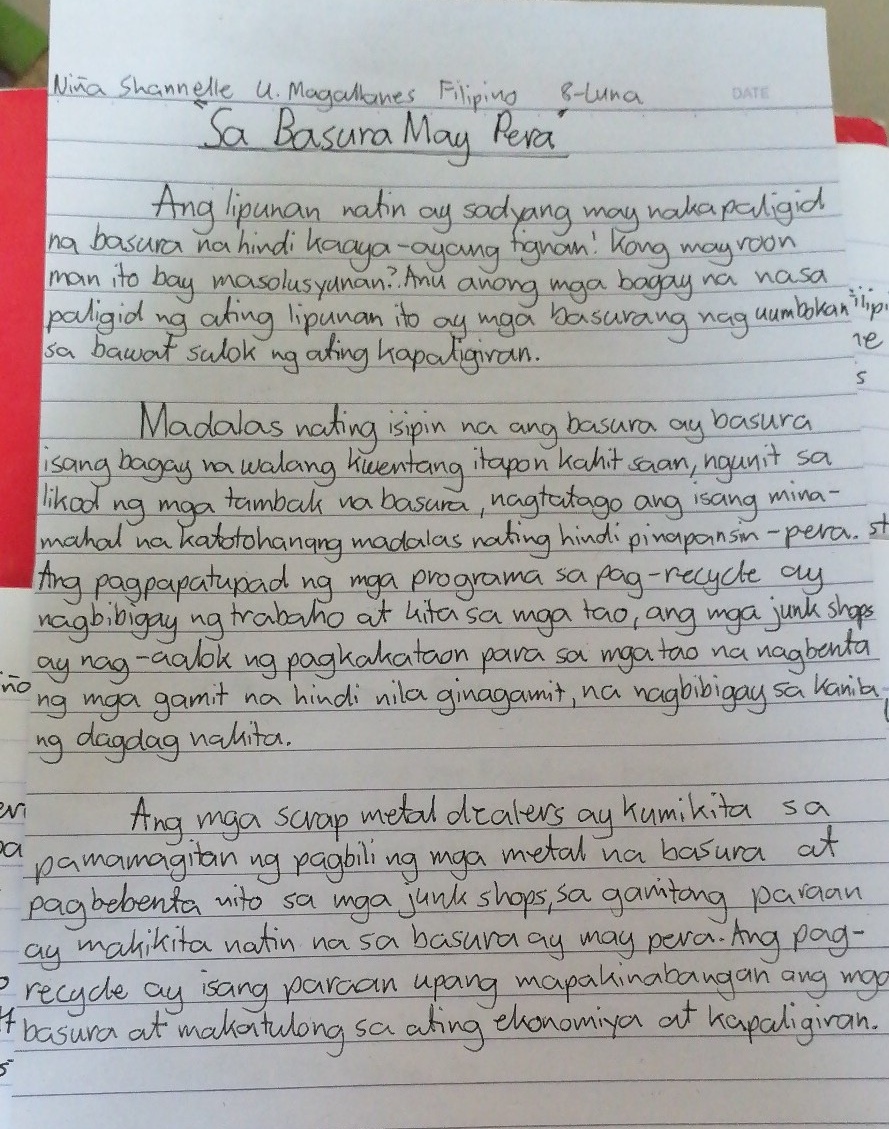 Niña Shannelle U. Magallanes Filipino 8-Luna DATE
"Sa Basura May Pera"
Ang lipunan natin ay sadyang may nakapaligid
na basura na hindi kaaya-ayang tignan! Kong mayroon
man ito bay masolusyunan? Anu anong mga bagay na nasa
paligid ng ating lipunan ito ay mga basurang nag uumbokan
sa bawat sulok ng ating kapaligiran.
Madalas nating isipin na ang basura ay basura
isang bagay na walang kwentang itapon kahit saan, ngunit sa
likod ng mga tambak na basura, nagtatago ang isang mina-
mahal na katotohanang madalas nating hindi pinapansin - pera.
Ang pagpapatupad ng mga programa sa pag-recycle ay
nagbibigay ng trabaho at kita sa mga tao, ang mga junk shops
ay nag-aalok ng pagkakataon para sa mga tao na nagbenta
ng mga gamit na hindi nila ginagamit, na nagbibigay sa kanila
ng dagdag na kita.
Ang mga scrap metal dealers ay kumikita sa
pamamagitan ng pagbili ng mga metal na basura at
pagbebenta nito sa mga junk shops, sa ganitong paraan
ay makikita natin na sa basura ay may pera. Ang pag-
recycle ay isang paraan upang mapakinabangan ang mga
basura at makatulong sa ating ekonomiya at kapaligiran.